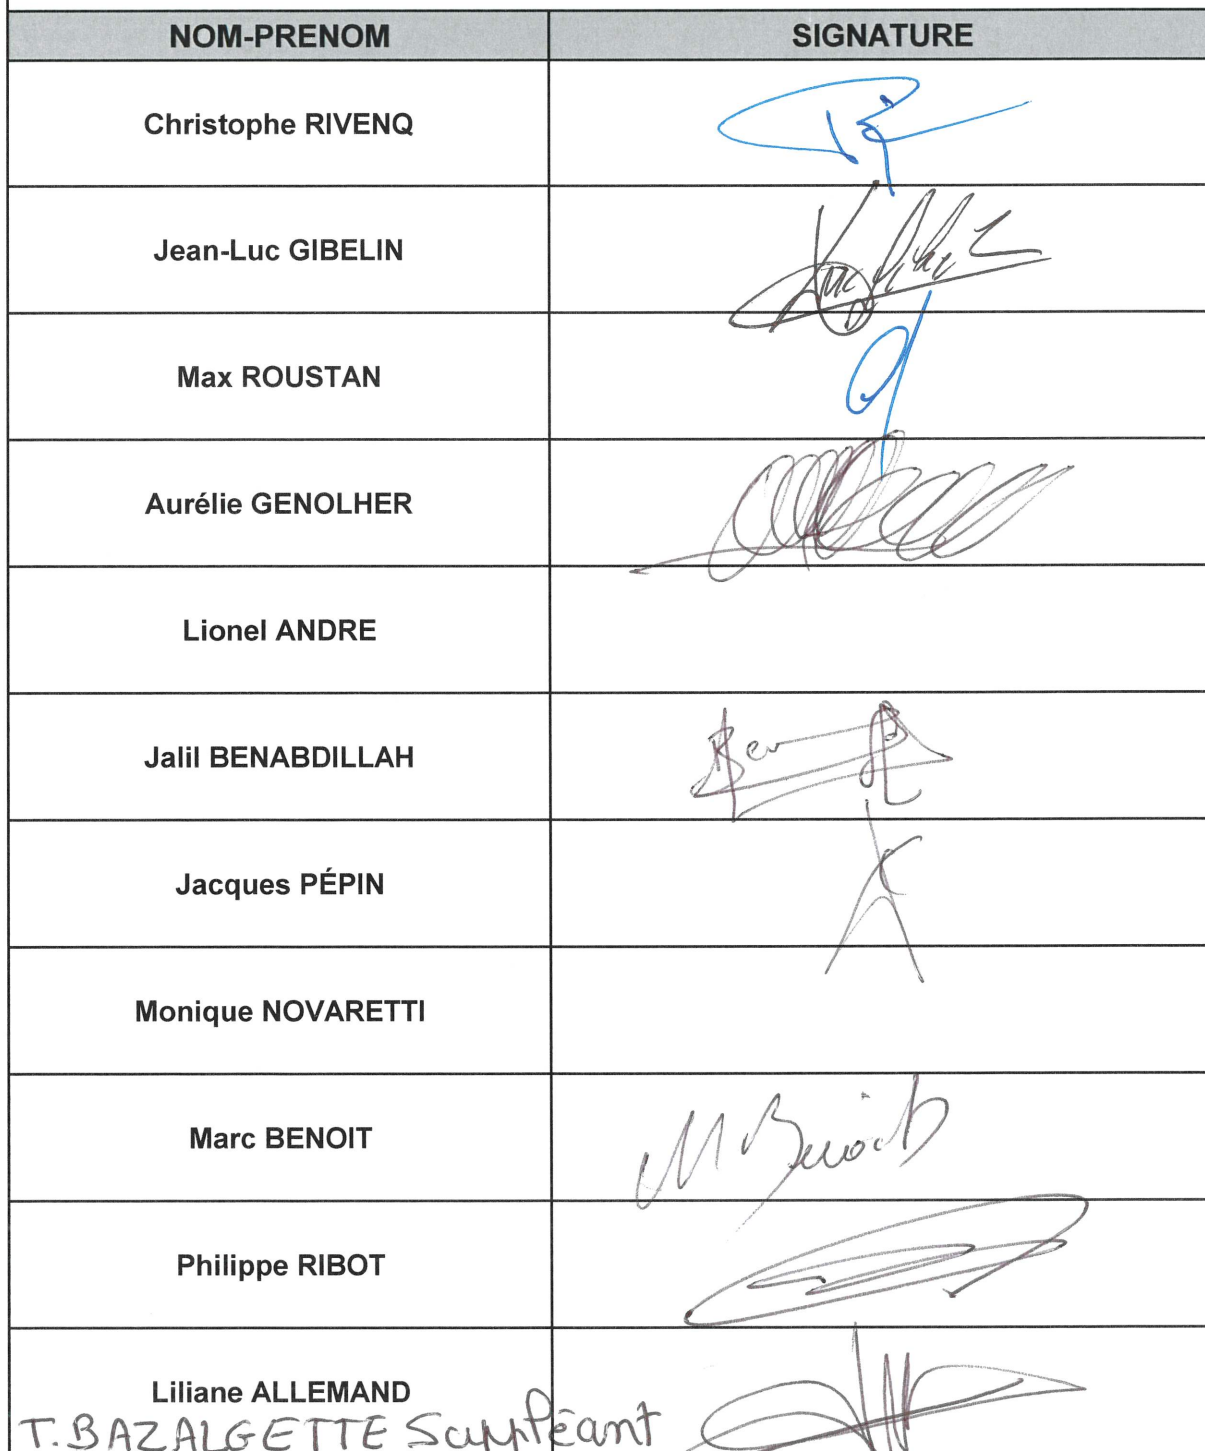 NOM-PRENOM SIGNATURE
Christophe RIVENQ
Jean-Luc GIBELIN
Max ROUSTAN
Aurélie GENOLHER
Lionel ANDRE
Jalil BENABDILLAH
Jacques PÉPIN
Monique NOVARETTI
Marc BENOIT M Benoit
Philippe RIBOT
Liliane ALLEMAND
T. BAZALGETTE Suppléant